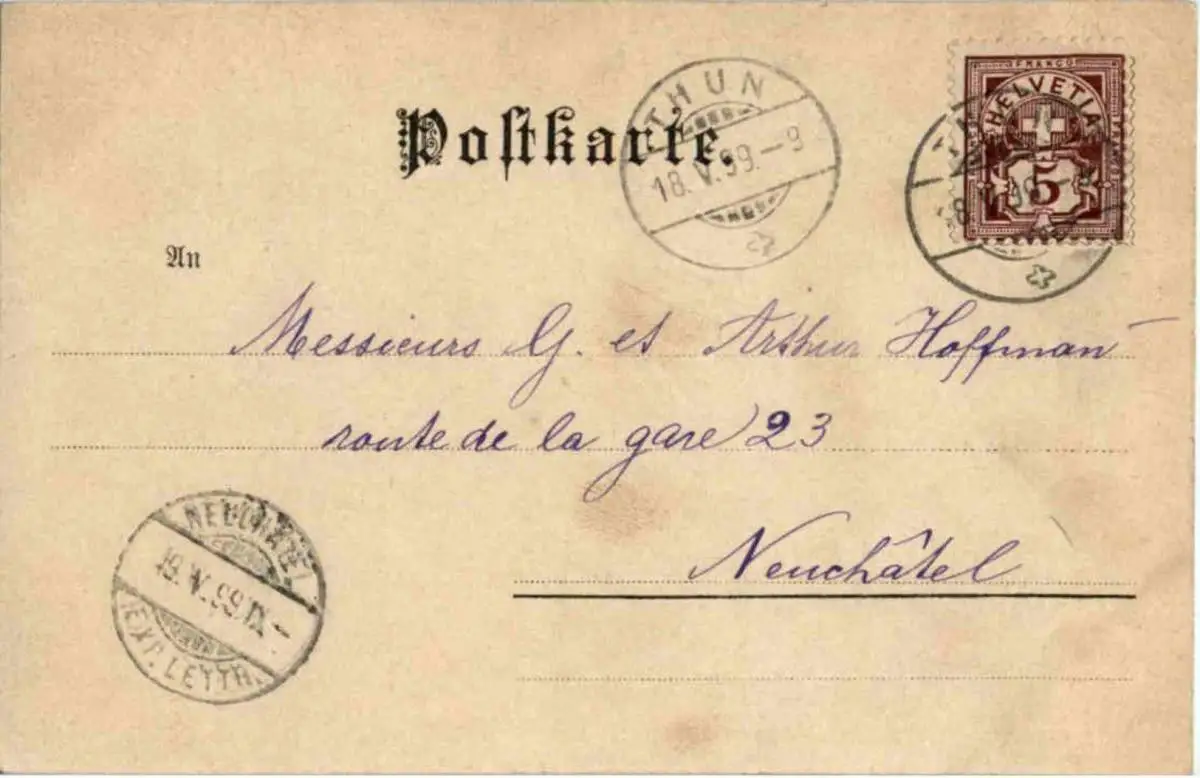 Postkarte.
THUN
18. V. 99. – 9
FRANCO
HELVETIA
5
An
Messieurs G. et Arthur Hoffman
route de la gare 23
Neuchâtel
NEUCHATEL
19. V. 99. IX –
(EXP. LETTR.